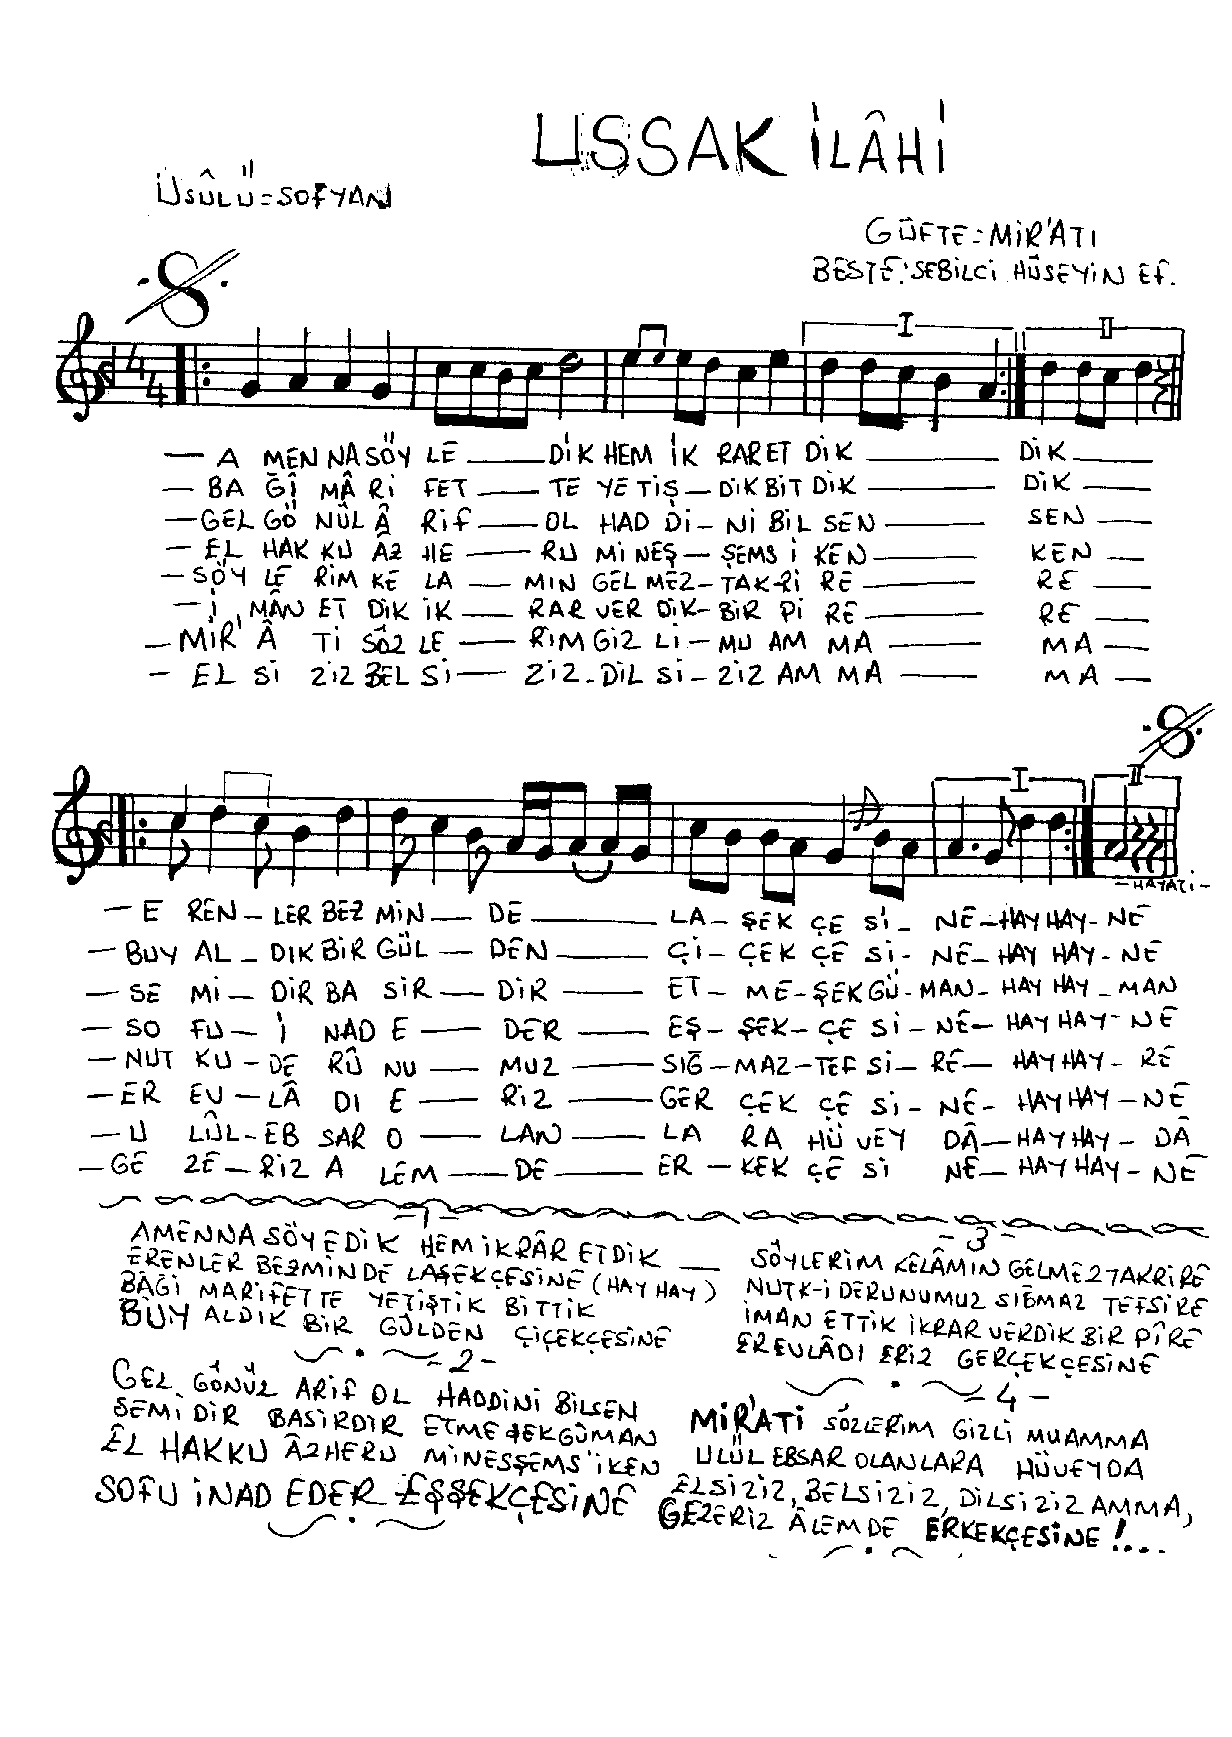 USSAK İLÂHİ
ÜSÛLÜ=SOFYAN
GÜFTE=MİR'ATI
BESTE:SEBİLCİ HÜSEYİN EF.
4
4
I
II
— A MEN NA SÖY LE — DİK HEM İK RAR ET DİK — DİK —
— BA ĞÎ MÂ Rİ FET — TE YE TİŞ — DİK BİT DİK — DİK —
— GEL GÖ NÜL Â RİF — OL HAD Dİ — Nİ BİL SEN — SEN —
— EL HAK KU ÂZ HE — RU Mİ NEŞ — ŞEMS İ KEN — KEN —
— SÖY LE RİM KE LA — MIN GEL MEZ — TAK Rİ RE — RE —
— İ MÂN ET DİK İK — RAR VER DİK — BİR Pİ RE — RE —
— MİR' Â Tİ SÖZ LE — RİM GİZ Lİ — MU AM MA — MA —
— EL Sİ ZİZ BEL Sİ — ZİZ — DİL Sİ — ZİZ AM MA — MA —
I
II
— HAYATİ —
— E REN — LER BEZ MİN — DE — LA — ŞEK ÇE Sİ — NE — HAY HAY — NE
— BUY AL — DIK BİR GÜL — DEN — Çİ — ÇEK ÇE Sİ — NE — HAY HAY — NE
— SE Mİ — DİR BA SİR — DİR — ET — ME — ŞEK GÜ — MAN — HAY HAY — MAN
— SO FU — İ NAD E — DER — EŞ — ŞEK — ÇE Sİ — NE — HAY HAY — NE
— NUT KU — DE RÛ NU — MUZ — SIĞ — MAZ — TEF Sİ — RE — HAY HAY — RE
— ER EV — LÂ DI E — RİZ — GER ÇEK ÇE Sİ — NE — HAY HAY — NE
— U LÜL — EB SAR O — LAN — LA RA HÜ VEY DÂ — HAY HAY — DÂ
— GE ZE — RİZ A LEM — DE — ER — KEK ÇE Sİ NE — HAY HAY — NE
— 1 —
AMENNA SÖYEDİK HEM İKRÂR ETDİK
ERENLER BEZMİNDE LAŞEKÇESİNE (HAY HAY)
BAĞİ MARİFETTE YETİŞTİK BİTTİK
BUY ALDIK BİR GÜLDEN ÇİÇEKÇESİNE
— 2 —
GEL GÖNÜL ARİF OL HADDİNİ BİLSEN
SEMİDİR BASİRDİR ETME ŞEKGÜMAN
EL HAKKU ÂZHERU MİNEŞŞEMS'İKEN
SOFU İNAD EDER EŞŞEKÇESİNE
— 3 —
SÖYLERİM KELÂMIN GELMEZ TAKRİRE
NUTK-İ DERUNUMUZ SIĞMAZ TEFSİRE
İMAN ETTİK İKRAR VERDİK BİR PÎRE
EREVLÂDI ERİZ GERÇEKÇESİNE
— 4 —
MİR'ATİ SÖZLERİM GİZLİ MUAMMA
ULÜL EBSAR OLANLARA HÜVEYDA
ELSİZİZ, BELSİZİZ, DİLSİZİZ AMMA,
GEZERİZ ÂLEMDE ERKEKÇESİNE!...